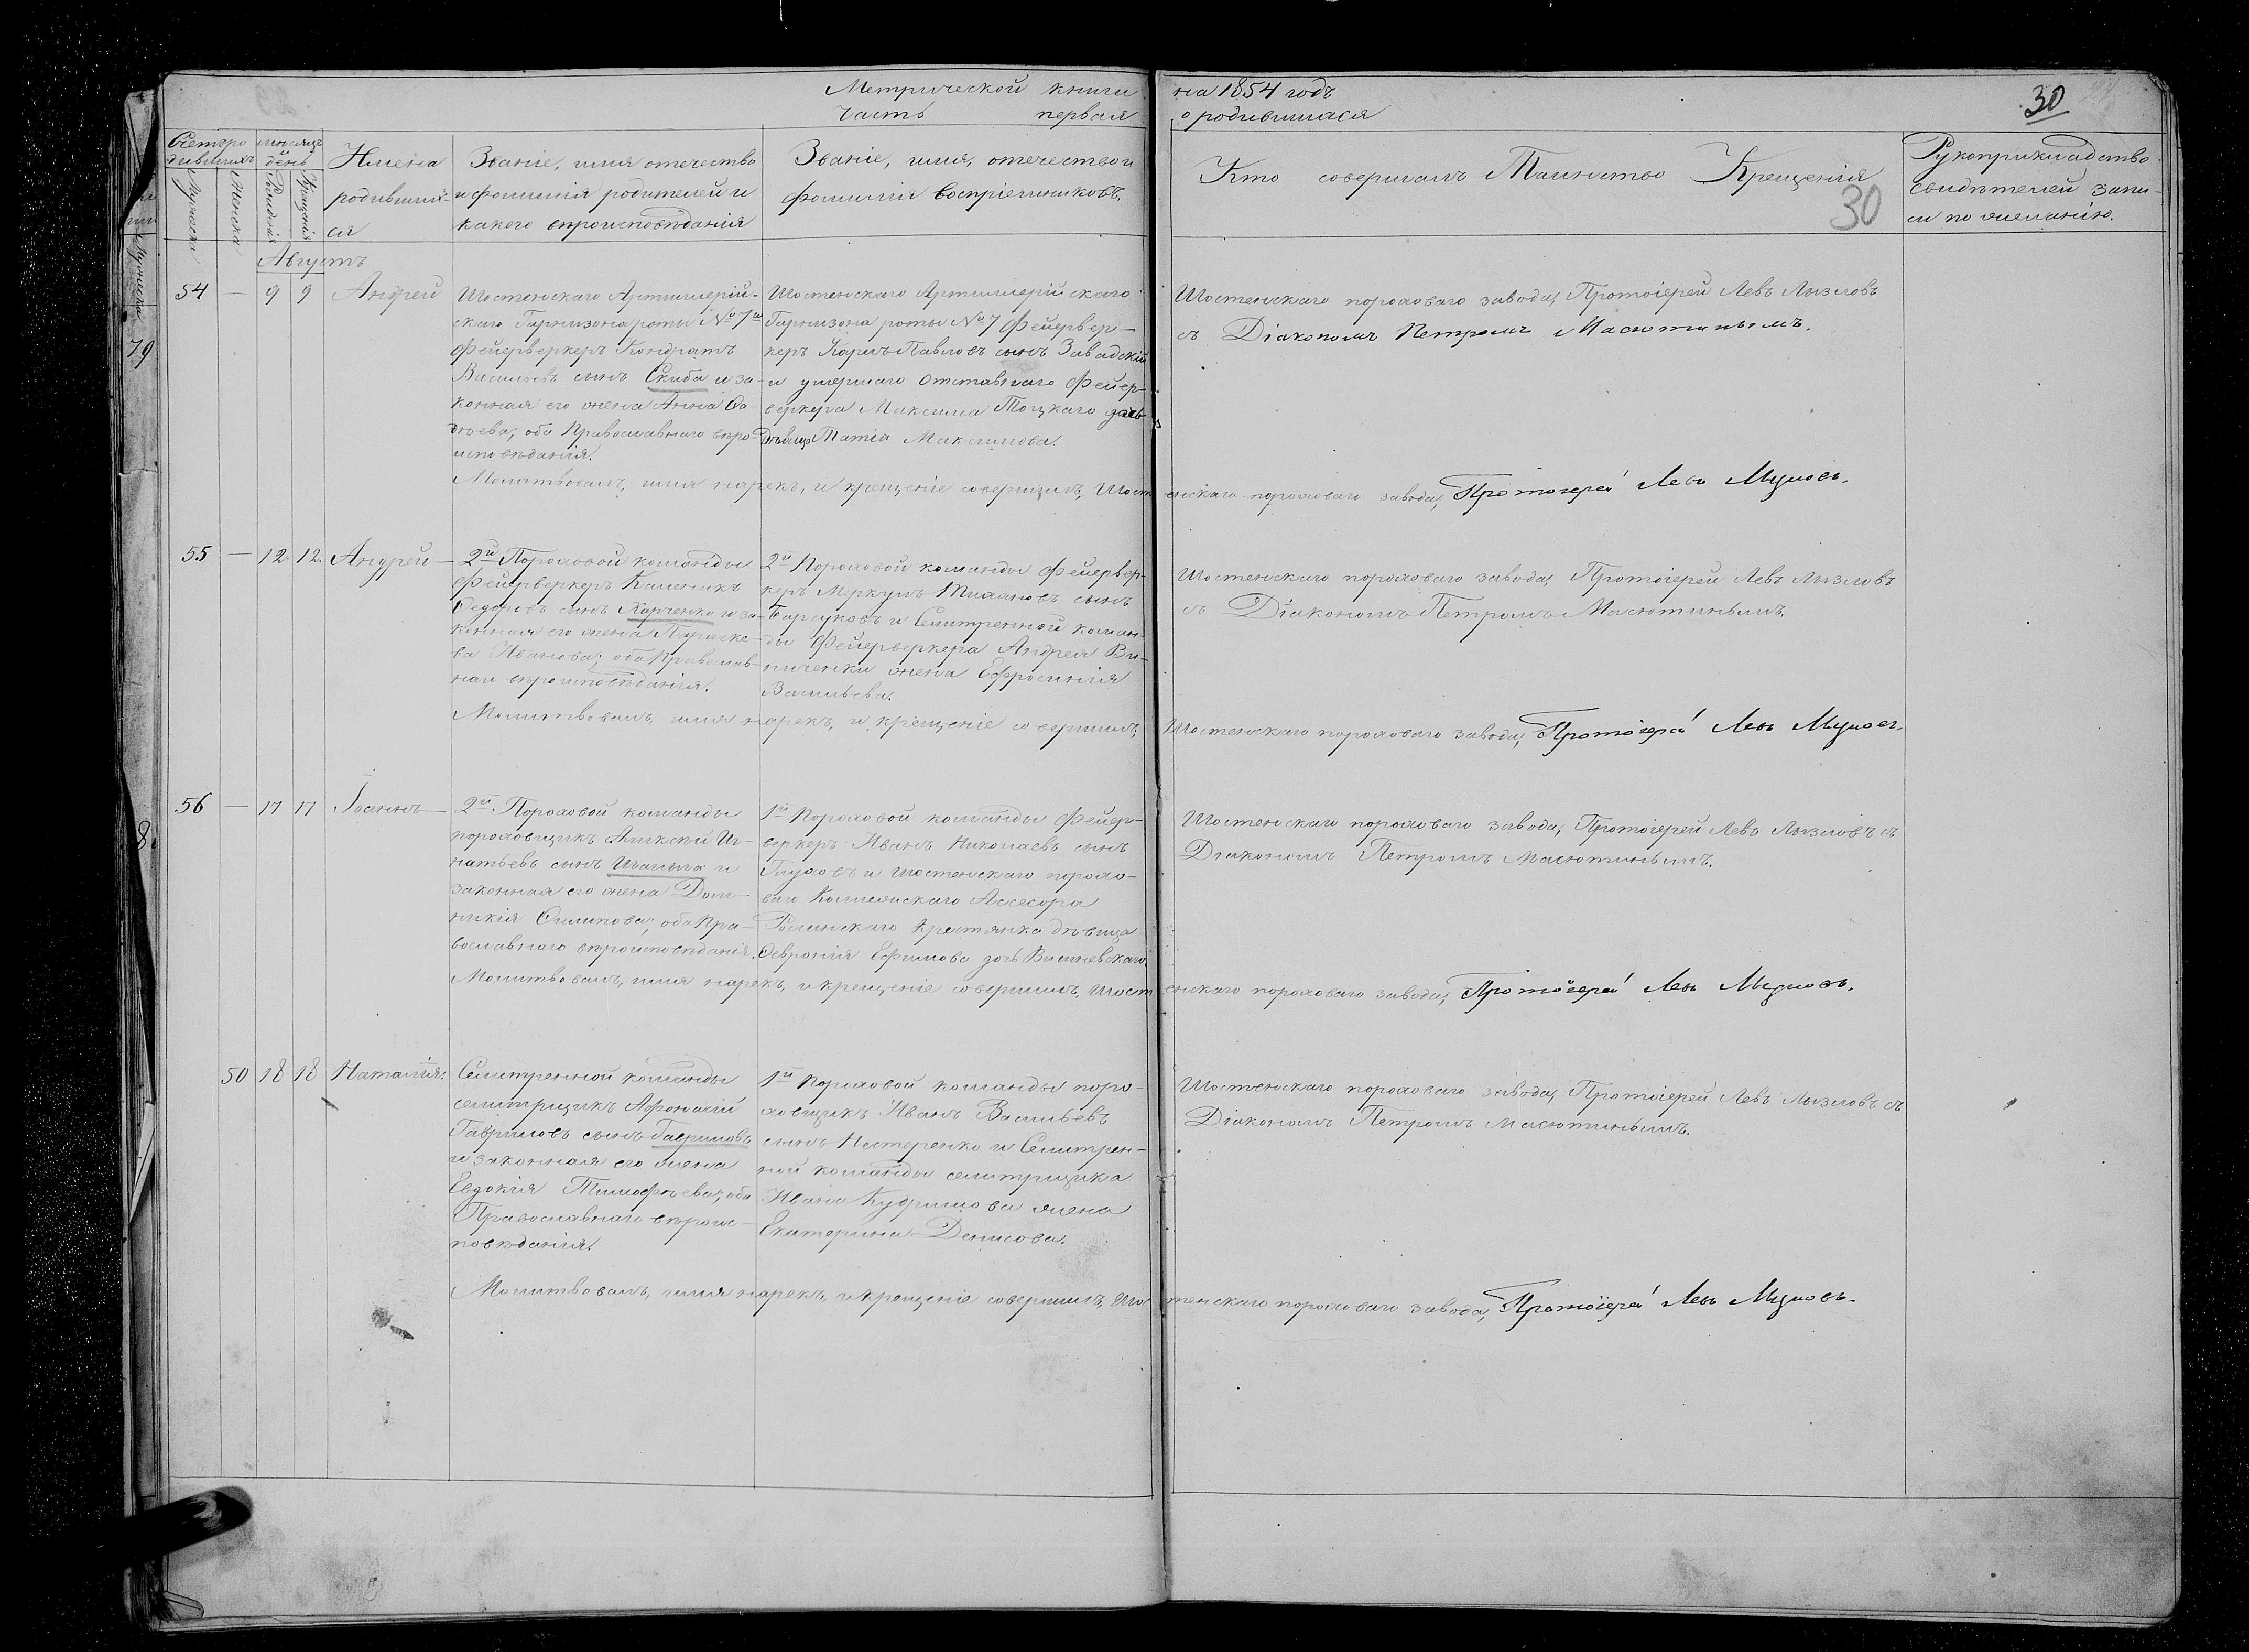 Метрической книги на 1854 годъ
Часть первая о родившихся
30
Счетъ родившихся
Мужеска
Женска
мѣсяцъ и день
Рожденія
Крещенія
Имена
родивших-
ся
Званіе, имя отечество
и фамилія родителей и
какого вѣроисповѣданія
Званіе, имя, отечество и
фамилія воспріемниковъ.
Кто совершалъ Таинство Крещенія
30
Рукоприкладство
свидѣтелей запи-
си по желанію.
Августъ
54 — 9 9 Андрей
Шостенскаго Артиллерій-
скаго Гарнизона роты № 7й
Фейерверкеръ Кондратъ
Васильевъ сынъ Скиба и за-
конная его жена Анна
оба Православнаго вѣро-
исповѣданія.
Шостенскаго Артиллерійскаго
Гарнизона роты № 7 Фейервер-
керъ Карпъ Павловъ сынъ Завадскій
и умершаго отставнаго Фейер-
веркера Максима Тоцкаго дочь
дѣвица Татія Максимова.
Шостенскаго пороховаго завода, Протоіерей Левъ Лызловъ
съ Діакономъ Петромъ Масютинымъ.
Молитвовалъ, имя нарекъ, и крещеніе совершилъ, Шостенскаго пороховаго завода, Протоіерей Левъ Лызловъ.
55 — 12. 12. Андрей —
2й Пороховой команды
Фейерверкеръ Калиникъ
Федоровъ сынъ Харченко и за-
конная его жена Параске-
ва Иванова; оба Православ-
наго вѣроисповѣданія.
2й Пороховой команды Фейервер-
керъ Меркулъ Тихановъ сынъ
Барсуковъ и Селитренной коман-
ды Фейерверкера Андрея Ви-
ниченки жена Ефросинія
Васильева.
Шостенскаго пороховаго завода, Протоіерей Левъ Лызловъ
съ Діакономъ Петромъ Масютинымъ.
Молитвовалъ, имя нарекъ, и крещеніе совершилъ, Шостенскаго пороховаго завода, Протоіерей Левъ Лызловъ.
56 — 17 17 Іоаннъ —
2й Пороховой команды
пороховщикъ Алексѣй Иг-
натьевъ сынъ и
законная его жена Дом-
никія Филипова; оба Пра-
вославнаго вѣроисповѣданія.
1й Пороховой команды Фейер-
веркеръ Иванъ Николаевъ сынъ
Глуховъ и Шостенскаго порохо-
ваго Коллежскаго Ассесора
Рослинскаго крестьянка дѣвица
Февронія Ефимова дочь Вишневскаго.
Шостенскаго пороховаго завода, Протоіерей Левъ Лызловъ съ
Діакономъ Петромъ Масютинымъ.
Молитвовалъ, имя нарекъ, и крещеніе совершилъ, Шостенскаго пороховаго завода, Протоіерей Левъ Лызловъ.
50 18 18 Наталія.
Селитренной команды
селитрщикъ Афонасій
Гавриловъ сынъ Гавриловъ
и законная его жена
Евдокія Тимофѣева; оба
Православнаго вѣроис-
повѣданія.
1й Пороховой команды поро-
ховщикъ Иванъ Васильевъ
сынъ Нестеренко и Селитрен-
ной команды селитрщика
Ивана Кудринова жена
Екатерина Денисова.
Шостенскаго пороховаго завода, Протоіерей Левъ Лызловъ съ
Діакономъ Петромъ Масютинымъ.
Молитвовалъ, имя нарекъ, и крещеніе совершилъ, Шостенскаго пороховаго завода, Протоіерей Левъ Лызловъ.